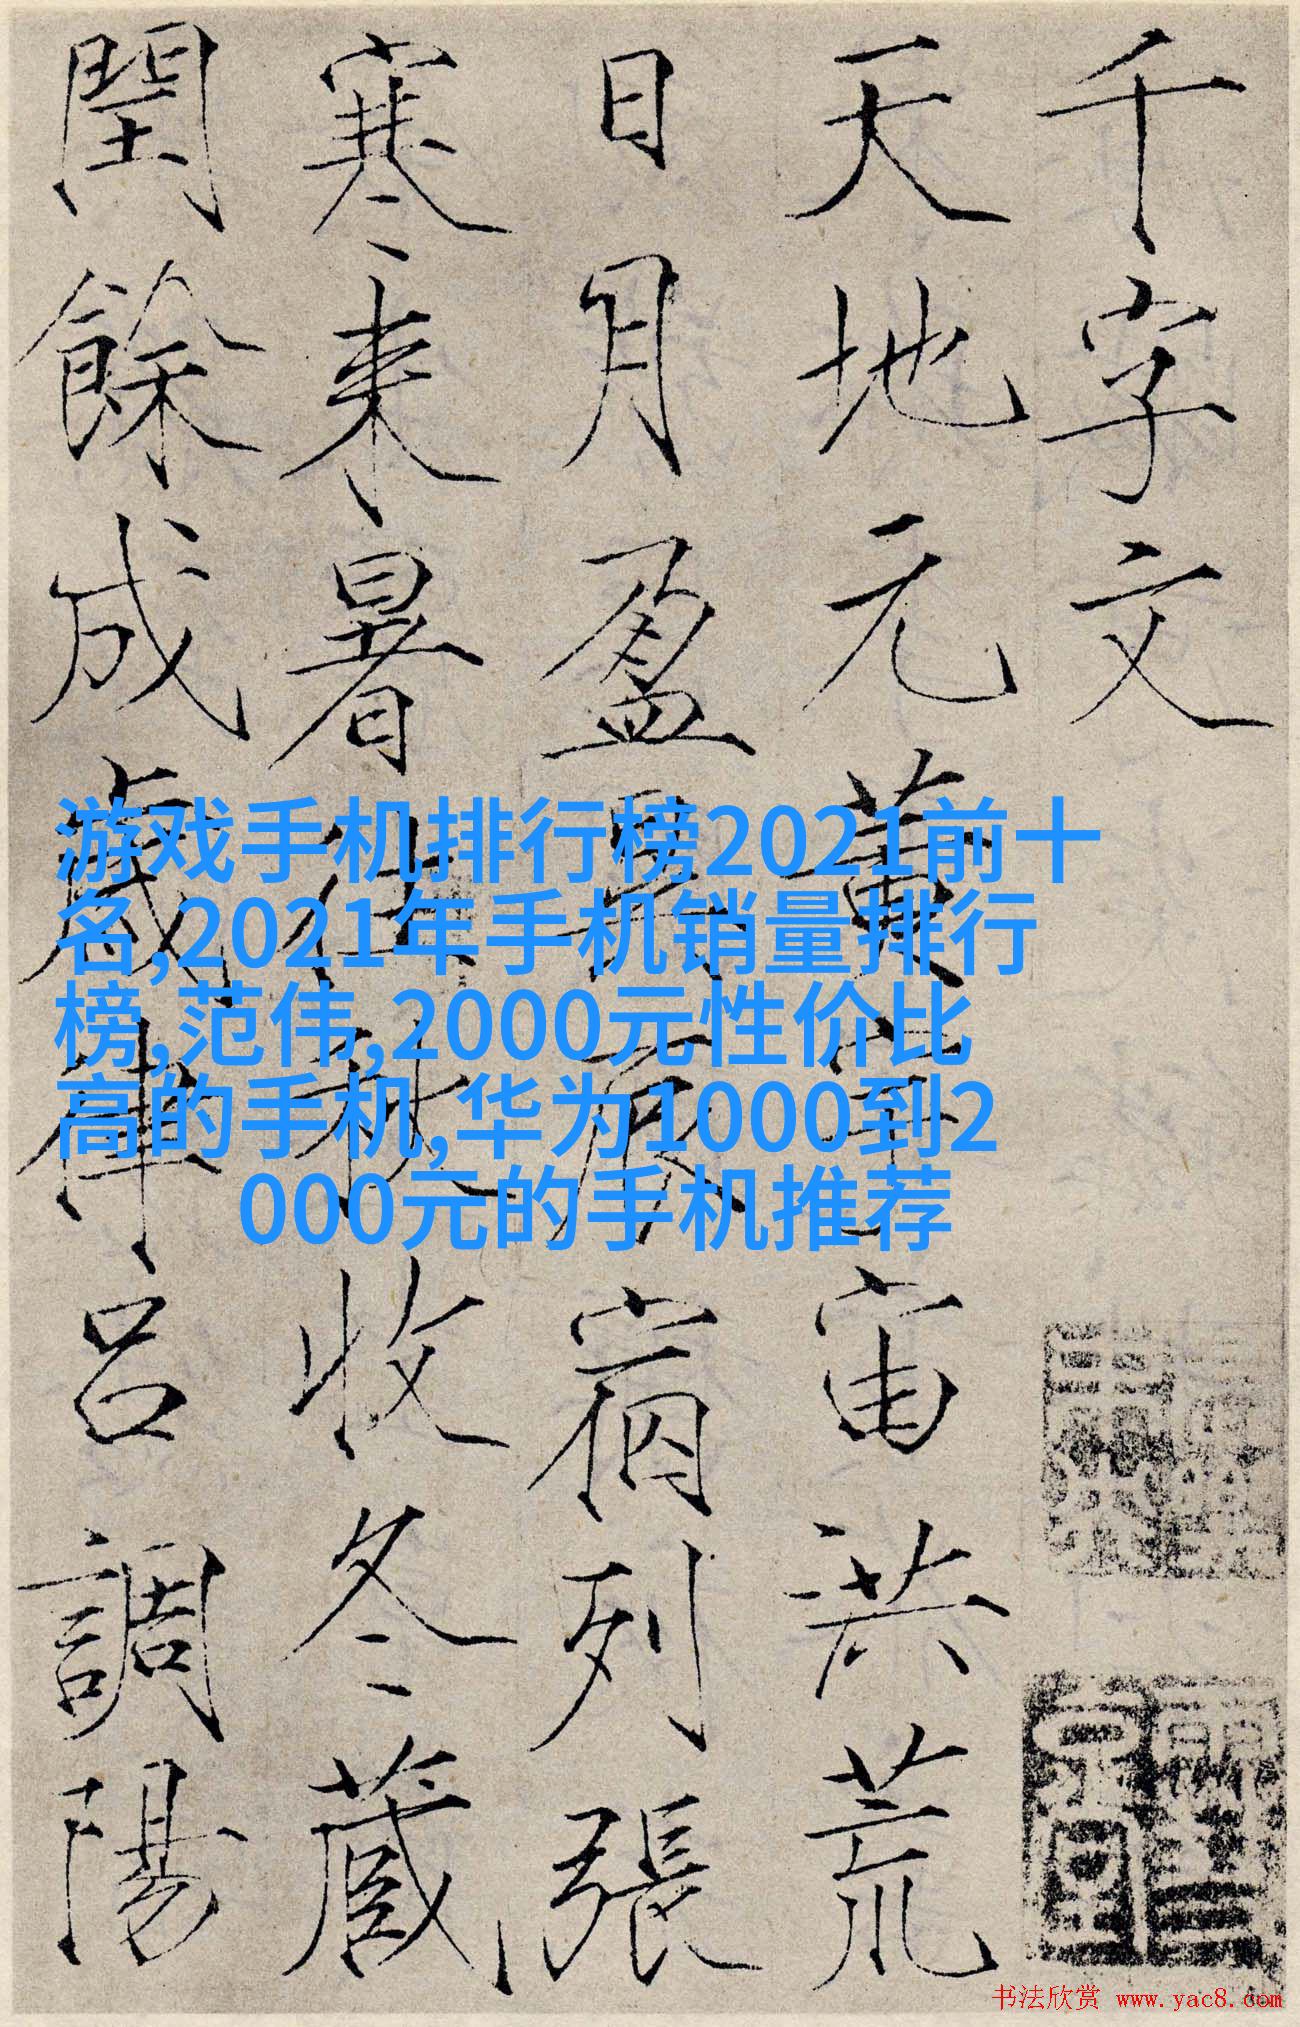 千字文
天地元黄宇宙洪荒
日月盈昃辰宿列張
寒来暑往秋收冬蔵
閏餘成歲律呂調陽
游戏手机排行榜2021前十
名,2021年手机销量排行
榜,范伟,2000元性价比
高的手机,华为1000到2
000元的手机推荐
书法欣赏 www.yac8.com